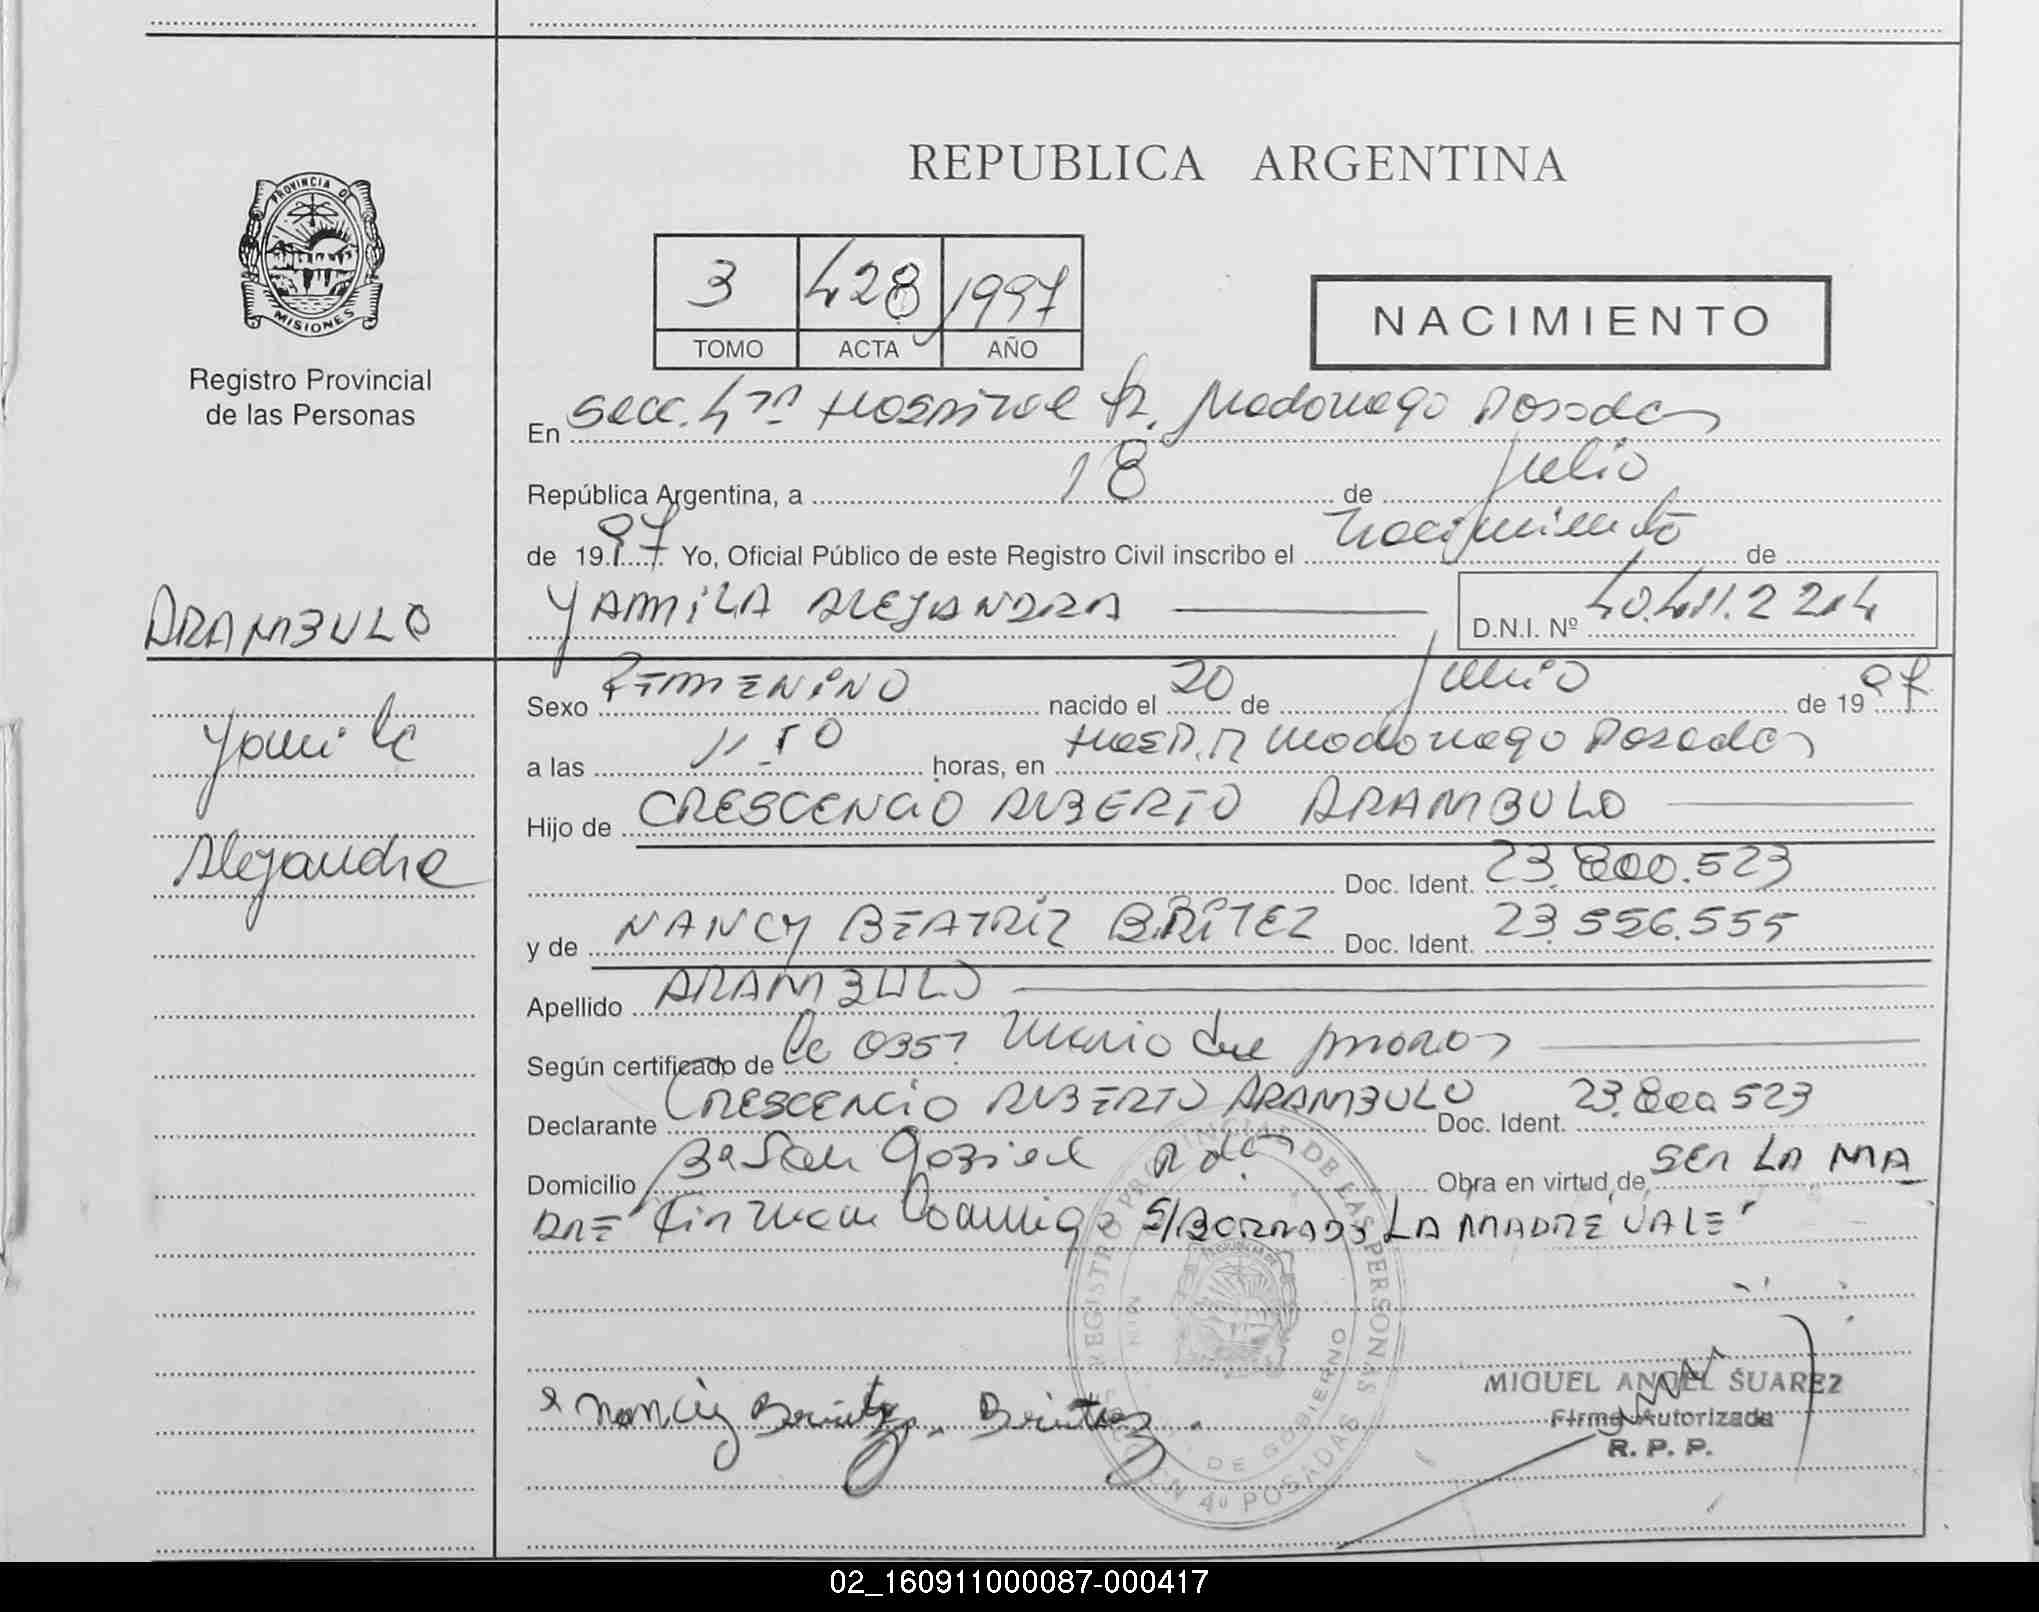 REPUBLICA ARGENTINA
PROVINCIA DE
MISIONES
Registro Provincial
de las Personas
3 428 1997
TOMO ACTA AÑO
NACIMIENTO
En Secc. 4ta Hospital R. Madariaga Posadas
República Argentina, a 18 de Julio
de 1997 Yo, Oficial Público de este Registro Civil inscribo el nacimiento de
ARAMBULO
YAMILA ALEJANDRA D.N.I. Nº 40.411.224
Yamila
Alejandra
Sexo FEMENINO nacido el 20 de Junio de 1997
a las horas, en Hosp. R Madariaga Posadas
Hijo de CRESCENCIO ALBERTO ARAMBULO
Doc. Ident. 23.800.523
y de NANCY BEATRIZ BRITEZ Doc. Ident. 23.556.555
Apellido ARAMBULO
Según certificado de la Obst Maria
Declarante CRESCENCIO ALBERTO ARAMBULO Doc. Ident. 23.800.523
Domicilio Bº San Gabriel Pdas Obra en virtud de SER LA MA
DRE Firman S/BORRADO LA MADRE VALE"
REGISTRO PROVINCIAL DE LAS PERSONAS
DE GOBIERNO
4º POSADAS
Nancy Britez. Britez.
MIGUEL ANGEL SUAREZ
Firma Autorizada
R. P. P.
02_160911000087-000417